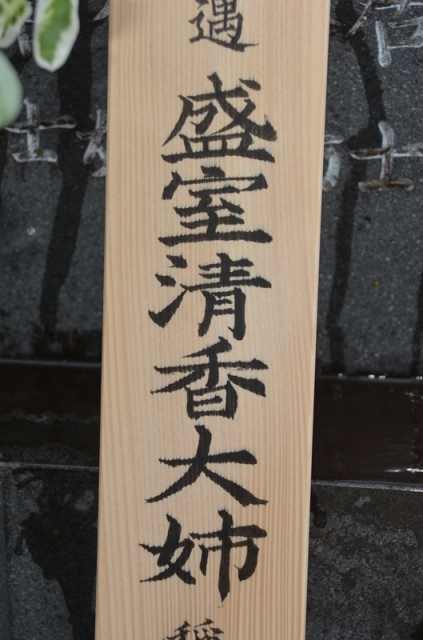 遇
盛室清香大姉